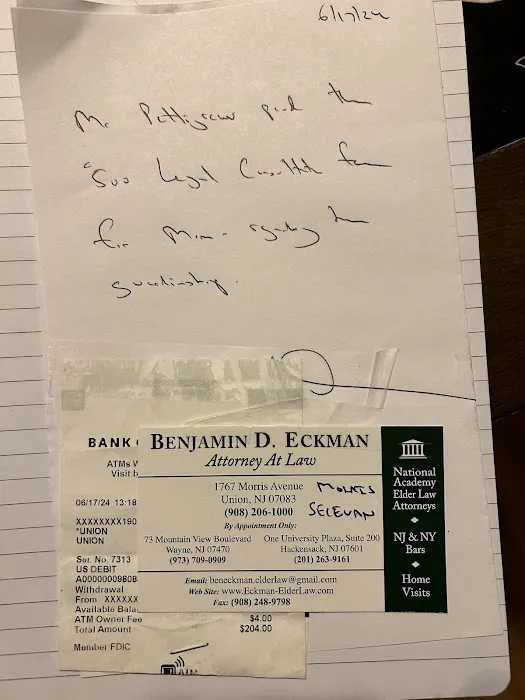 6/17/24
Mr Pettigrew paid the
$500 Legal Consultation fee
for Mom - regarding her
guardianship.
BANK
ATMs
Visit b
06/17/24 13:18
XXXXXXXX190
*UNION
UNION
Ser. No. 7313
US DEBIT
A0000000980
Withdrawal
From XXXXXX
Available Bala
ATM Owner Fee $4.00
Total Amount $204.00
Member FDIC
BENJAMIN D. ECKMAN
Attorney At Law
1767 Morris Avenue
Union, NJ 07083
(908) 206-1000
SELEVAN
By Appointment Only:
73 Mountain View Boulevard
Wayne, NJ 07470
(973) 709-0909
One University Plaza, Suite 200
Hackensack, NJ 07601
(201) 263-9161
Email: beneckman.elderlaw@gmail.com
Web Site: www.Eckman-ElderLaw.com
Fax: (908) 248-9798
National
Academy
Elder Law
Attorneys
NJ & NY
Bars
Home
Visits